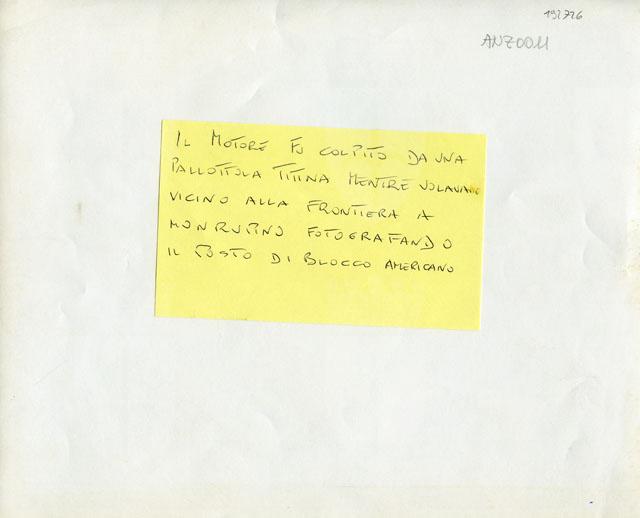 192726
ANZ0011
IL MOTORE FU COLPITO DA UNA
PALLOTTOLA TITINA MENTRE VOLAVAMO
VICINO ALLA FRONTIERA A
MONRUPINO FOTOGRAFANDO
IL POSTO DI BLOCCO AMERICANO